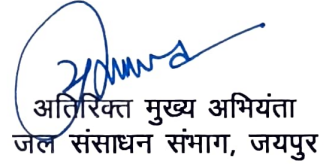 अतिरिक्त मुख्य अभियंता
जल संसाधन संभाग, जयपुर